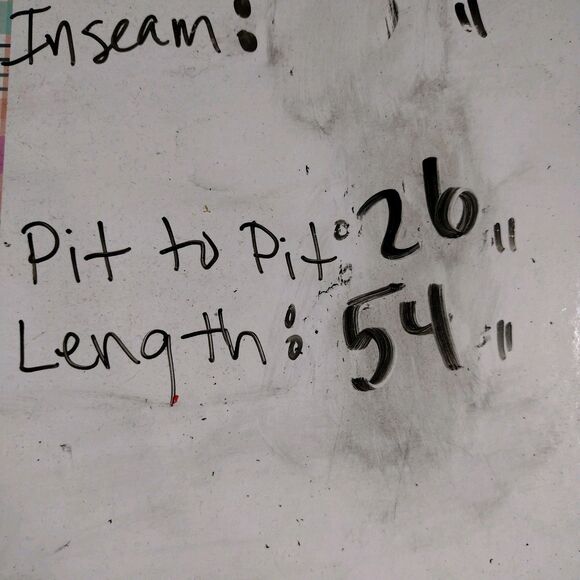 Inseam: "
Pit to Pit: 26"
Length: 54"